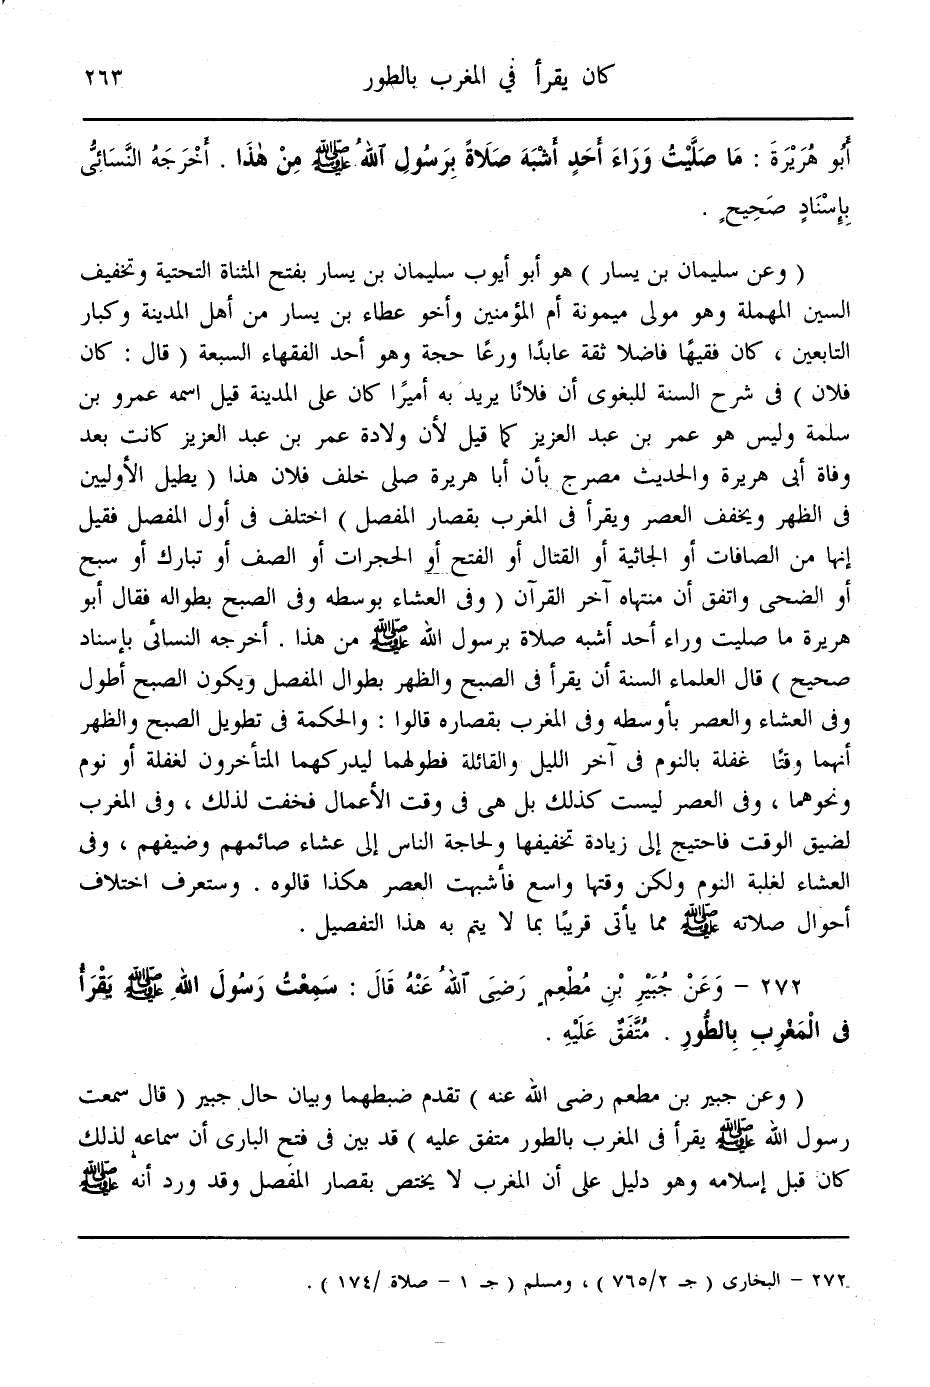 كان يقرأ في المغرب بالطور ٢٦٣
أَبُو هُرَيْرَةَ : مَا صَلَّيْتُ وَرَاءَ أَحَدٍ أَشْبَهَ صَلَاةً بِرَسُولِ ٱللهُ ﷺ مِنْ هٰذَا . أَخْرَجَهُ النَّسَائِىُّ
بِإِسْنَادٍ صَحِيحٍ .
( وعن سليمان بن يسار ) هو أبو أيوب سليمان بن يسار بفتح المثناة التحتية وتخفيف
السين المهملة وهو مولى ميمونة أم المؤمنين وأخو عطاء بن يسار من أهل المدينة وكبار
التابعين ، كان فقيهًا فاضلا ثقة عابدًا ورعًا حجة وهو أحد الفقهاء السبعة ( قال : كان
فلان ) فى شرح السنة للبغوى أن فلانًا يريد به أميرًا كان على المدينة قيل اسمه عمرو بن
سلمة وليس هو عمر بن عبد العزيز كما قيل لأن ولادة عمر بن عبد العزيز كانت بعد
وفاة أبى هريرة والحديث مصرح بأن أبا هريرة صلى خلف فلان هذا ( يطيل الأوليين
فى الظهر ويخفف العصر ويقرأ فى المغرب بقصار المفصل ) اختلف فى أول المفصل فقيل
إنها من الصافات أو الجاثية أو القتال أو الفتح أو الحجرات أو الصف أو تبارك أو سبح
أو الضحى واتفق أن منتهاه آخر القرآن ( وفى العشاء بوسطه وفى الصبح بطواله فقال أبو
هريرة ما صليت وراء أحد أشبه صلاة برسول الله ﷺ من هذا . أخرجه النسائى بإسناد
صحيح ) قال العلماء السنة أن يقرأ فى الصبح والظهر بطوال المفصل ويكون الصبح أطول
وفى العشاء والعصر بأوسطه وفى المغرب بقصاره قالوا : والحكمة فى تطويل الصبح والظهر
أنهما وقتًا غفلة بالنوم فى آخر الليل والقائلة فطولهما ليدركهما المتأخرون لغفلة أو نوم
ونحوهما ، وفى العصر ليست كذلك بل هى فى وقت الأعمال فخفت لذلك ، وفى المغرب
لضيق الوقت فاحتيج إلى زيادة تخفيفها ولحاجة الناس إلى عشاء صائمهم وضيفهم ، وفى
العشاء لغلبة النوم ولكن وقتها واسع فأشبهت العصر هكذا قالوه . وستعرف اختلاف
أحوال صلاته ﷺ مما يأتى قريبًا بما لا يتم به هذا التفصيل .
٢٧٢ – وَعَنْ جُبَيْرِ بْنِ مُطْعِمٍ رَضِىَ ٱللهُ عَنْهُ قَالَ : سَمِعْتُ رَسُولَ اللهِ ﷺ يَقْرَأُ
فى الْمَغْرِبِ بِالطُّورِ . مُتَّفَقٌ عَلَيْهِ .
( وعن جبير بن مطعم رضى الله عنه ) تقدم ضبطهما وبيان حال جبير ( قال سمعت
رسول الله ﷺ يقرأ فى المغرب بالطور متفق عليه ) قد بين فى فتح البارى أن سماعه لذلك
كان قبل إسلامه وهو دليل على أن المغرب لا يختص بقصار المفصل وقد ورد أنه ﷺ
٢٧٢ – البخارى ( جـ ٧٦٥/٢ ) ، ومسلم ( جـ ١ – صلاة /١٧٤ ) .